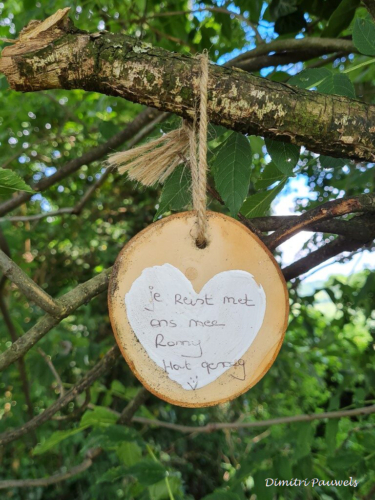 je Reist met
ons mee
Romy
Hat gerrig
Dimitri Pauwels